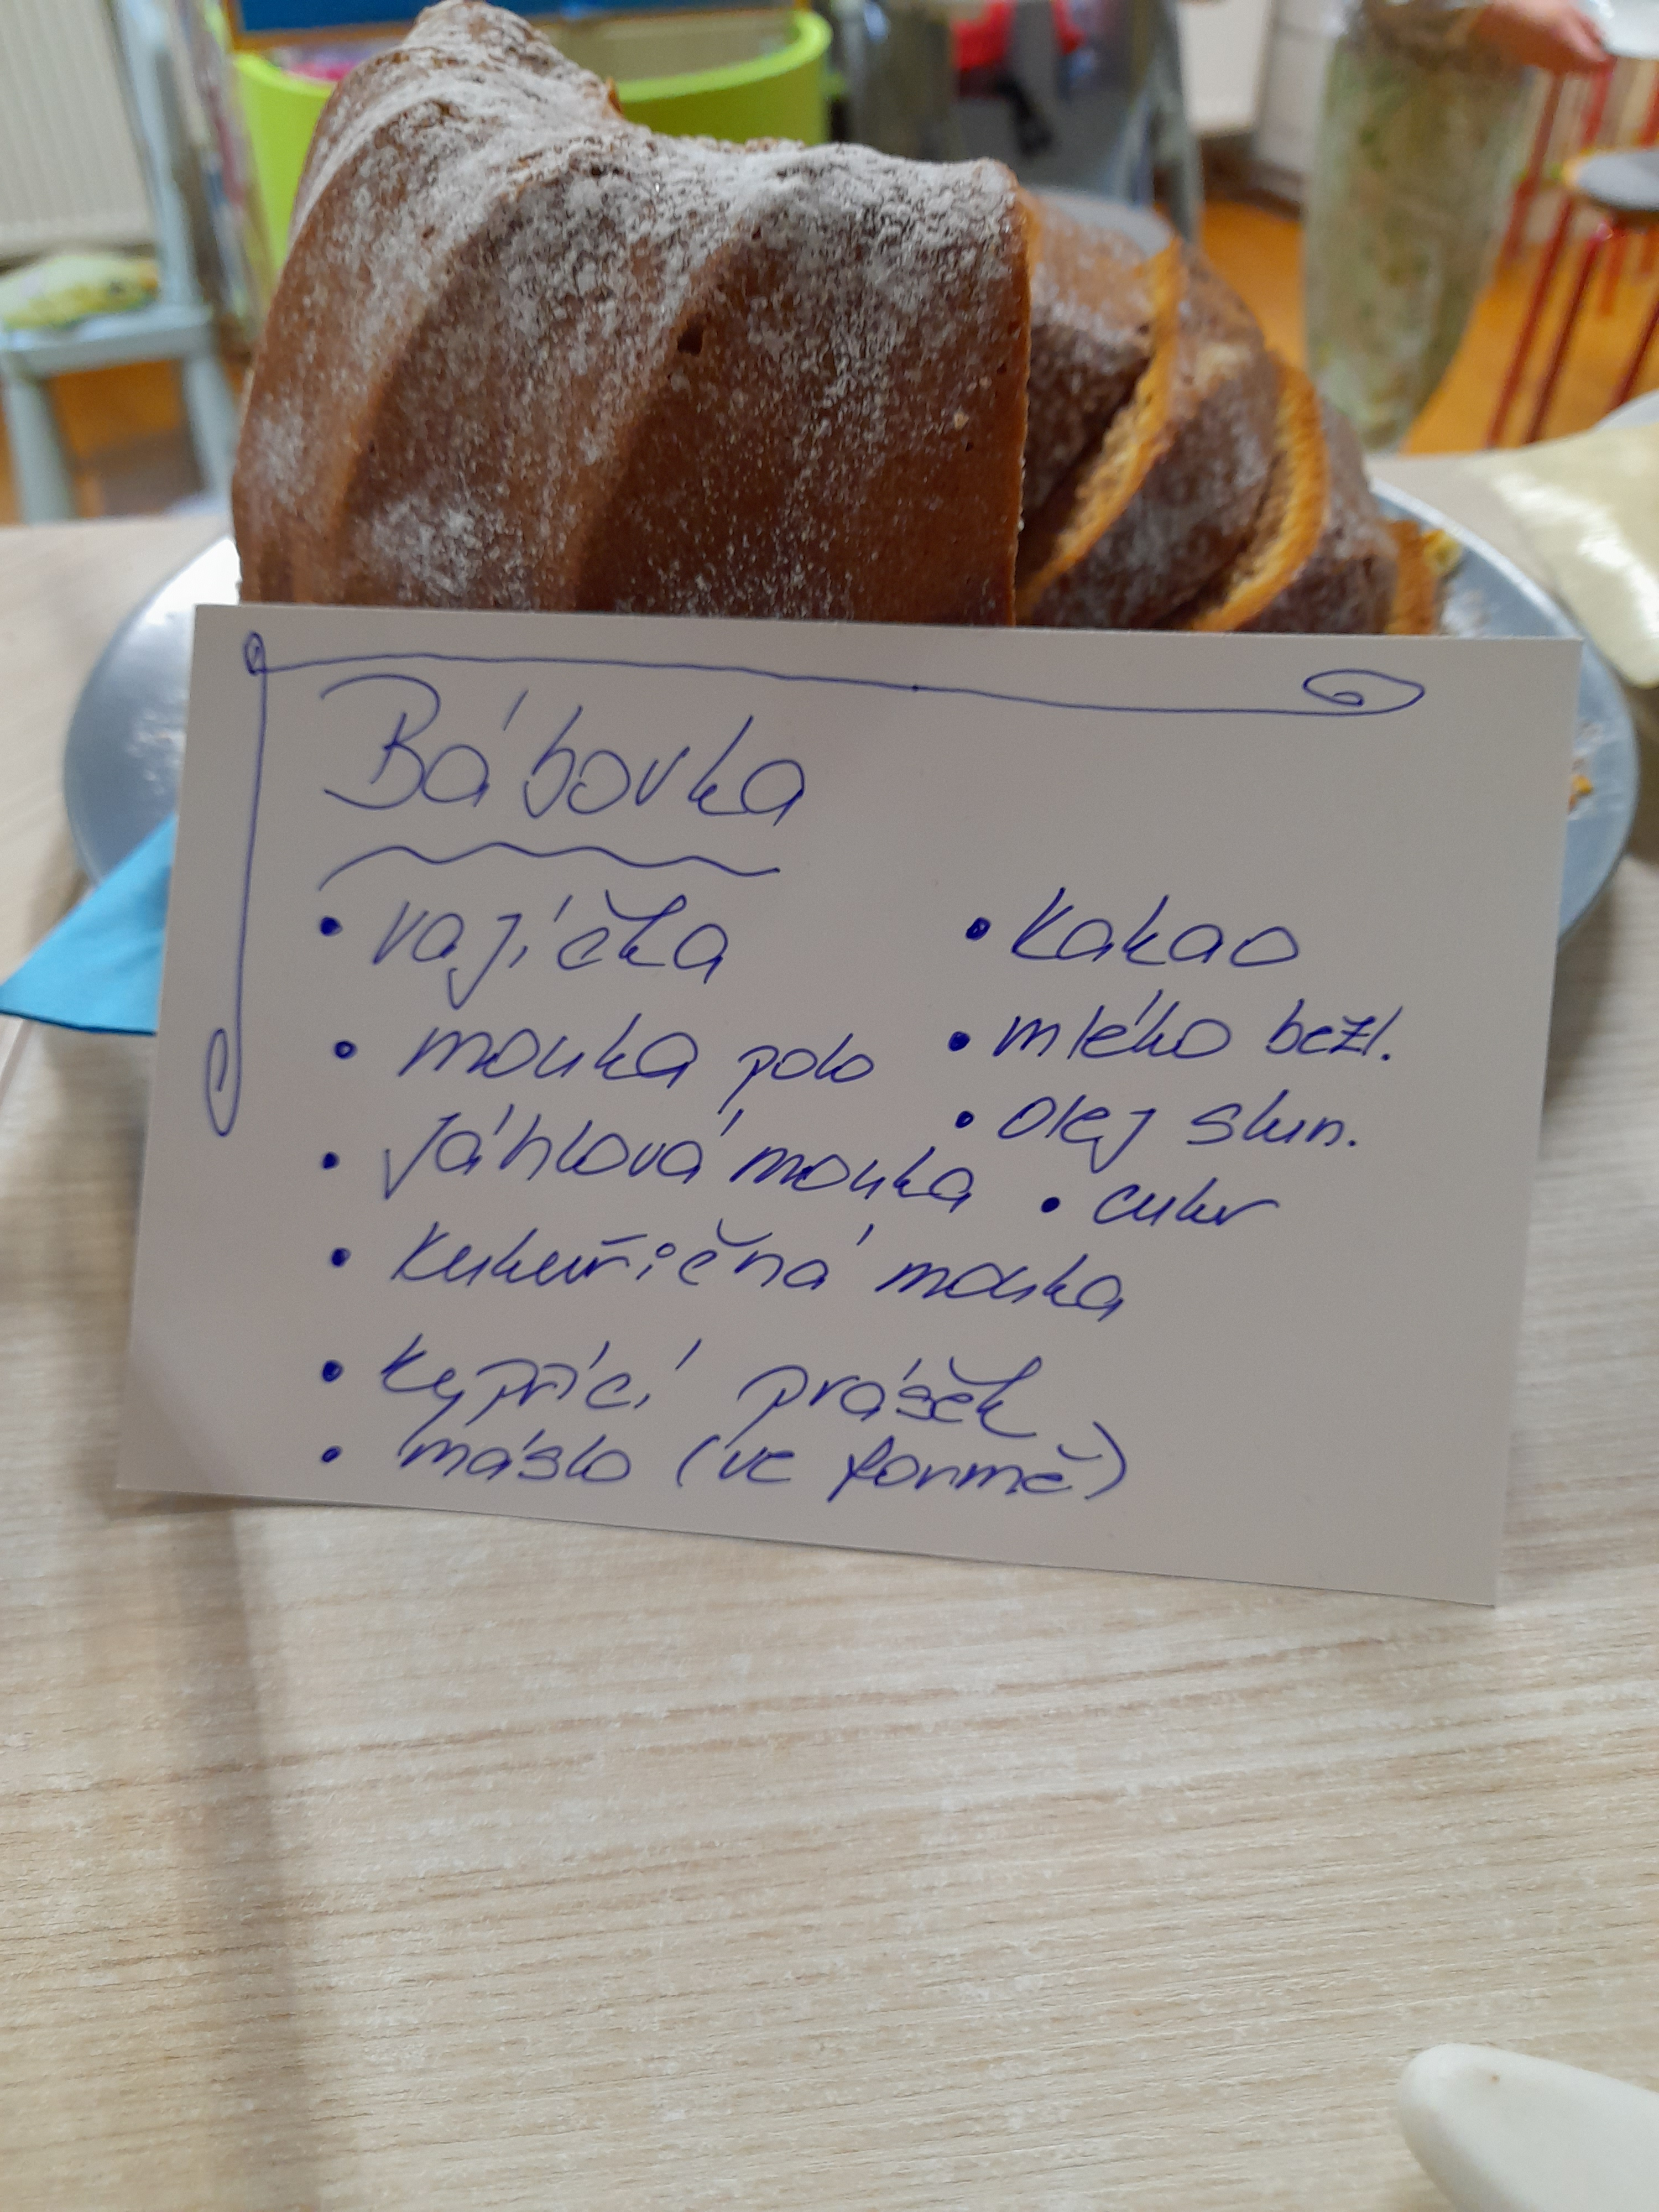 Bábovka
• vajíčka
• mouka polo
• Jáhlová mouka
• Kukuřičná mouka
• Kypřící prášek
• máslo (ve formě)
• Kakao
• mléko bezl.
• Olej slun.
• cukr